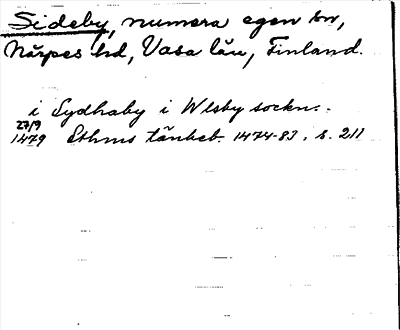 Sideby, numera egen sn,
Närpes hd, Vasa län, Finland.
i Sydhaby i Wlsby sockn.
27/9
1479 Sthms tänkeb. 1474-83, s. 211